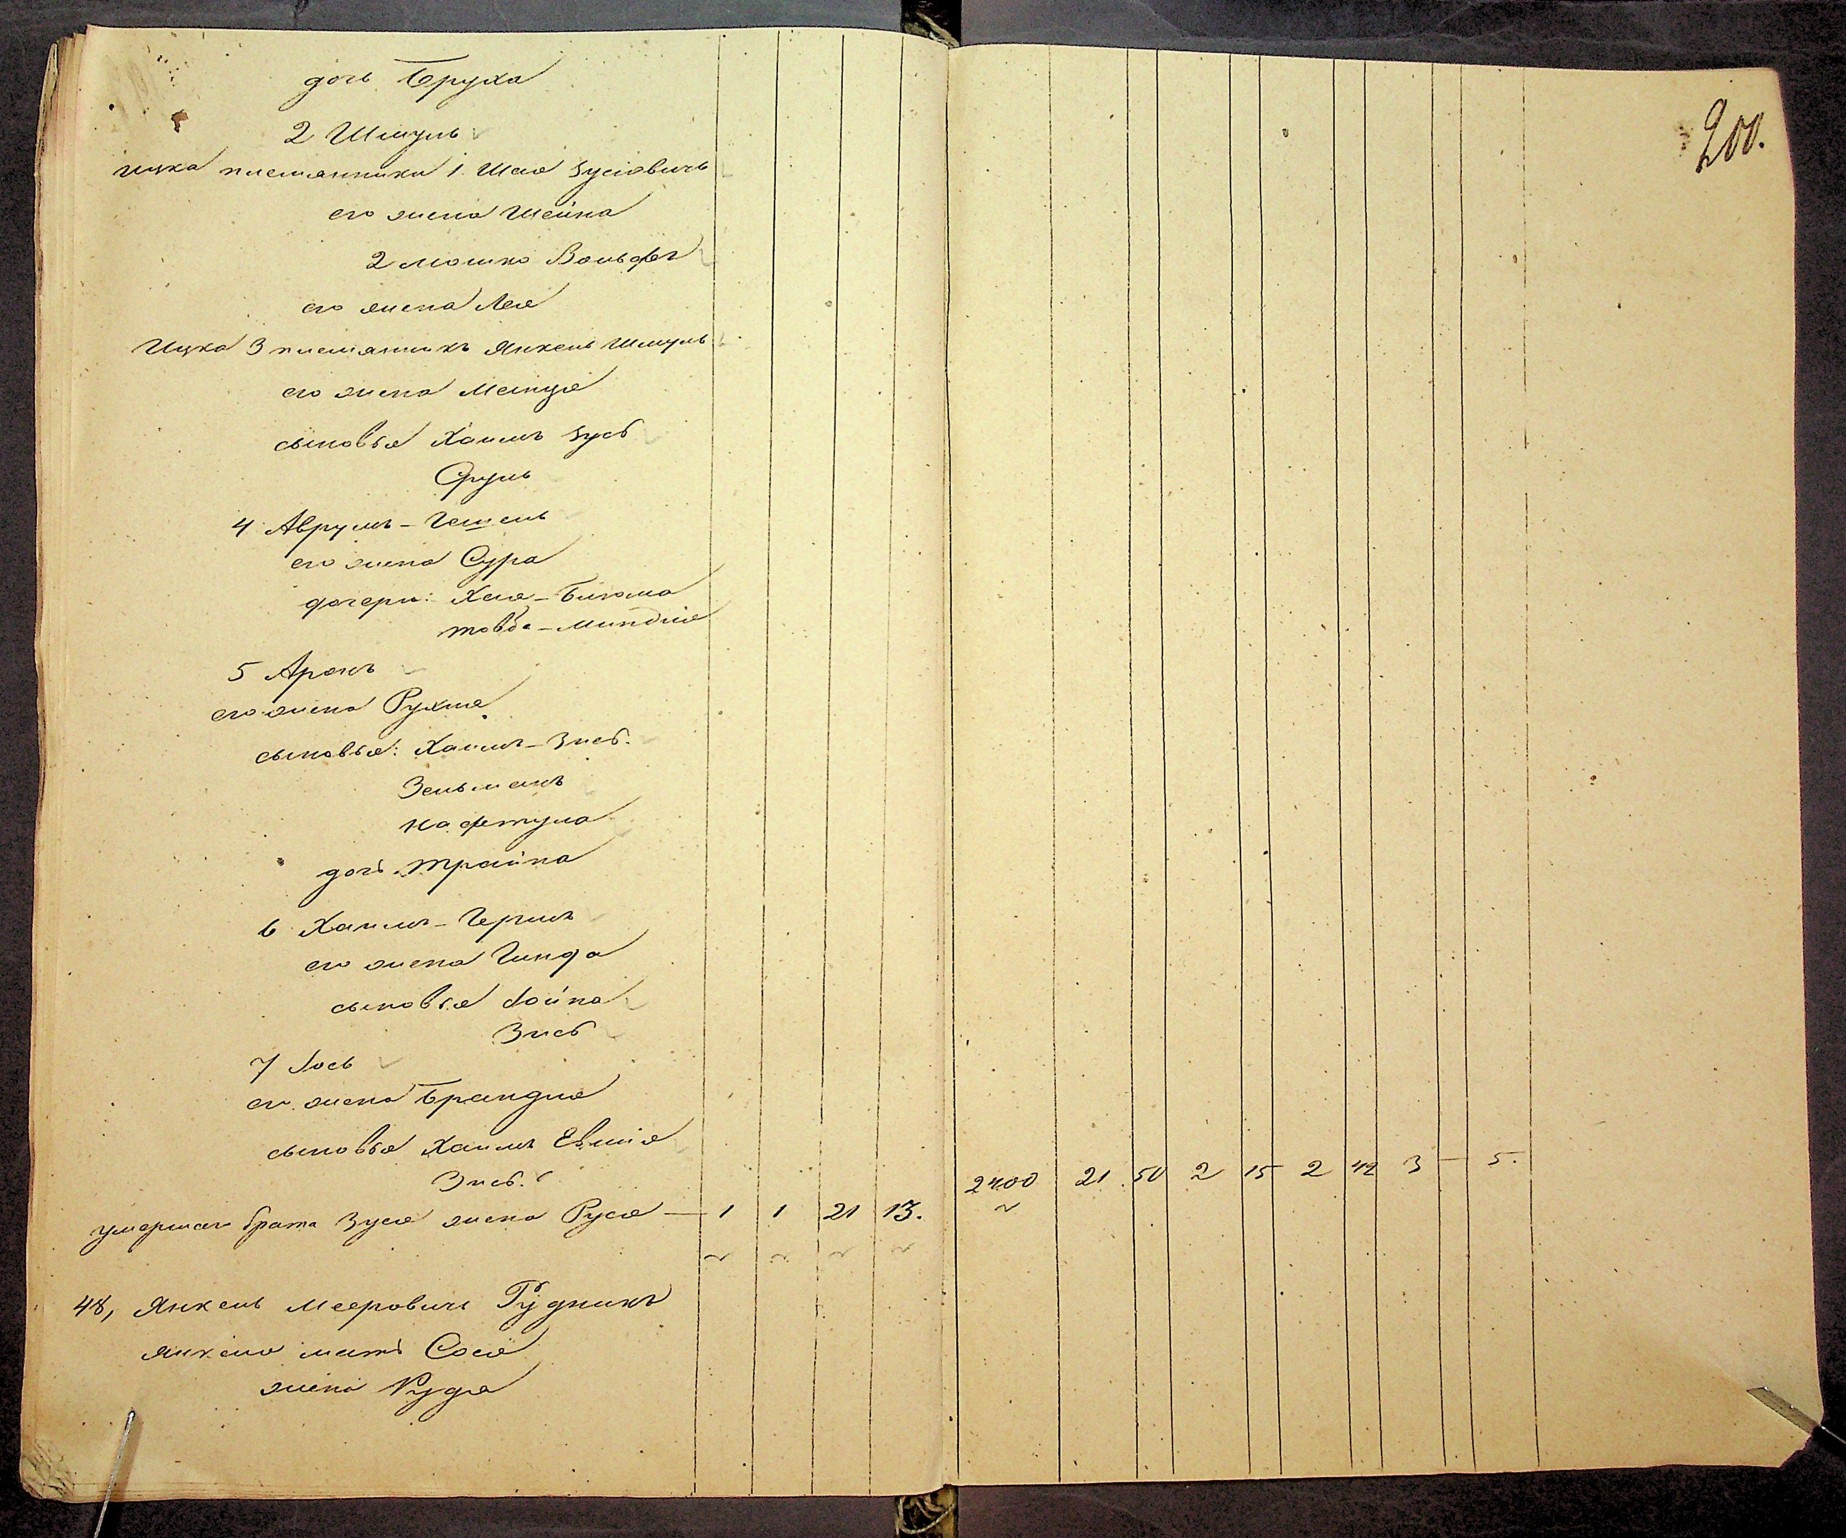 дочь Бруха
2 Шмуль
Ицка племянники 1. Шая Зусіовичъ
его жена Шейна
2 Мошко Вольфъ
его жена Лея
Ицка 3 племянникъ Янкель Шмуль
его жена Менуя
сыновья Хаимъ Зусь
Сруль
4 Аврумъ - Гешель
его жена Сура
дочери: Хая - Блюма
Товба - Миндля
5 Аронъ
его жена Рухля
сыновья: Хаимъ - Зись.
Зельманъ
Нафтула
дочь Трайна
6 Хаимъ - Гершъ
его жена Гинда
сыновья Лойна
Зись
7 Лось
его жена Брандля
сыновья Хаимъ Евшія
Зись.
умершаго брата Зуся жена Руся — 1 1 21 13.
48, Янкель Мееровичъ Рудникъ
Янкеля мать Сося
жена Рудя
200.
2400 21 50 2 15 2 42 3 — 5.